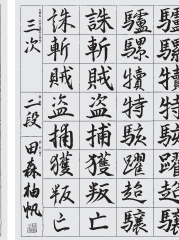 驢騾犢特駭躍超驤
驢騾犢特駭躍超驤
誅斬賊盜捕獲叛亡
誅斬賊盜捕獲叛亡
三次 二段 田森柚帆